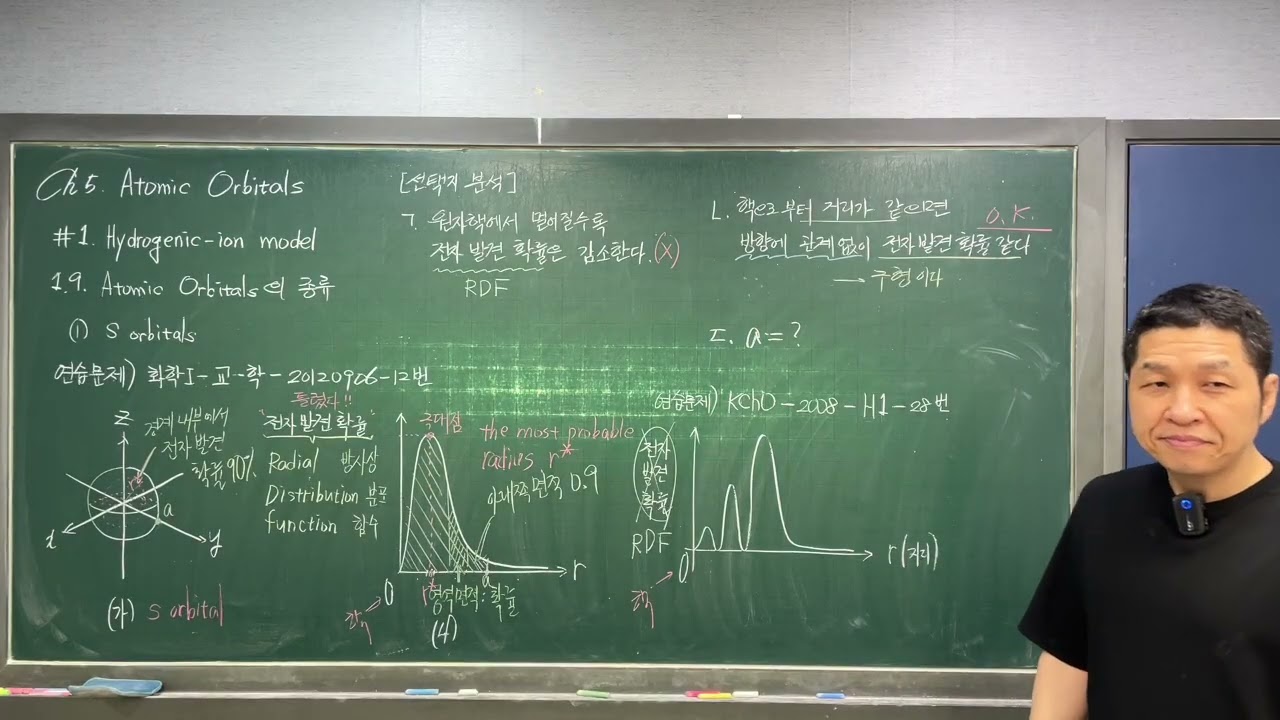 Ch5. Atomic Orbitals
#1. Hydrogenic-ion model
1.9. Atomic Orbitals의 종류
① S orbitals
연습문제) 화학I-교-학-20120906-12번
[선택지 분석]
ㄱ. 원자핵에서 멀어질수록
전자 발견 확률은 감소한다. (X)
RDF
ㄴ. 핵으로부터 거리가 같으면
O.K.
방향에 관계없이 전자 발견 확률 같다
→ 구형이다
ㄷ. a = ?
연습문제) KChO-2008-H1-28번
z
경계 내부에서
전자 발견
확률 90%
r
a
x
y
(가) S orbital
틀렸다!!
"전자 발견 확률"
Radial 방사상
Distribution 분포
function 함수
극대점
the most probable
radius r*
아래쪽 면적 0.9
a
r
0
r*
면적 : 확률
핵
(나)
전자
발견
확률
RDF
0
r (거리)
핵